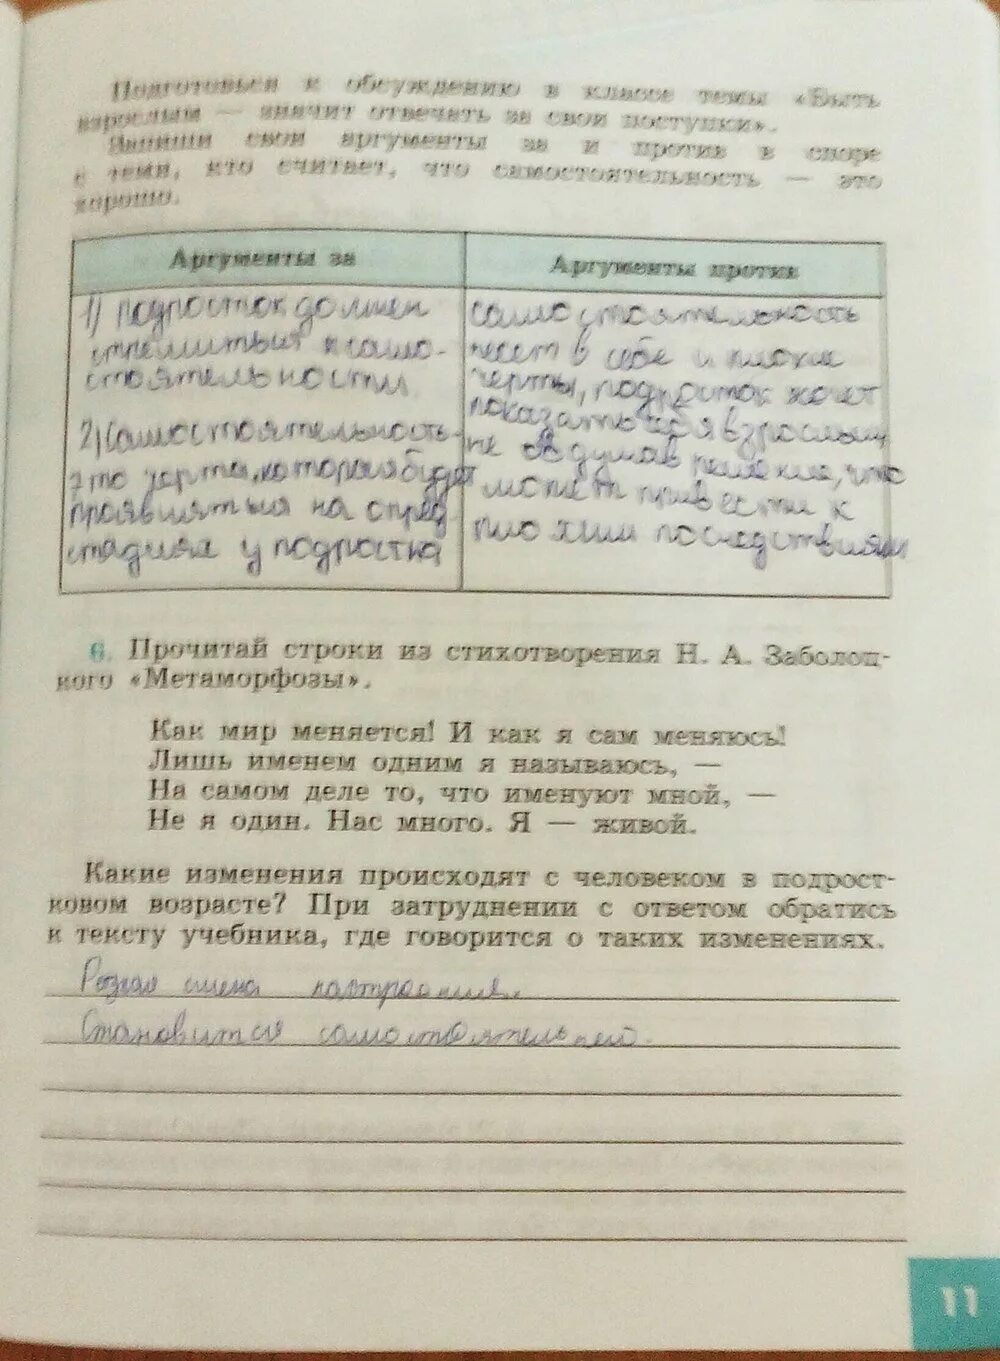 Подготовься к обсуждению в классе темы «Быть
взрослым — значит отвечать за свои поступки».
Запиши свои аргументы за и против в споре
с теми, кто считает, что самостоятельность — это
хорошо.
Аргументы за
1) подросток должен
стремиться к само-
стоятельности.
2) Самостоятельность-
это черта, которая будет
проявляться на опред.
стадиях у подростка
Аргументы против
самостоятельность
несет в себе и плохие
черты, подросток хочет
показать себя взрослым,
не обдумав решение, что
может привести к
плохим последствиям
6. Прочитай строки из стихотворения Н. А. Заболоц-
кого «Метаморфозы».
Как мир меняется! И как я сам меняюсь!
Лишь именем одним я называюсь, —
На самом деле то, что именуют мной, —
Не я один. Нас много. Я — живой.
Какие изменения происходят с человеком в подрост-
ковом возрасте? При затруднении с ответом обратись
к тексту учебника, где говорится о таких изменениях.
Резкая смена настроения.
Становится самостоятельней.
11